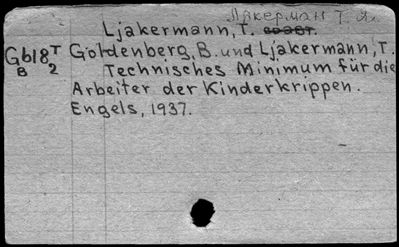 Лякерман Т. Я.
Ljakermann, T.
G618 T Goldenberg, B. und Ljakermann, T.
B 2 Technisches Minimum für die
Arbeiter der Kinderkrippen.
Engels, 1937.